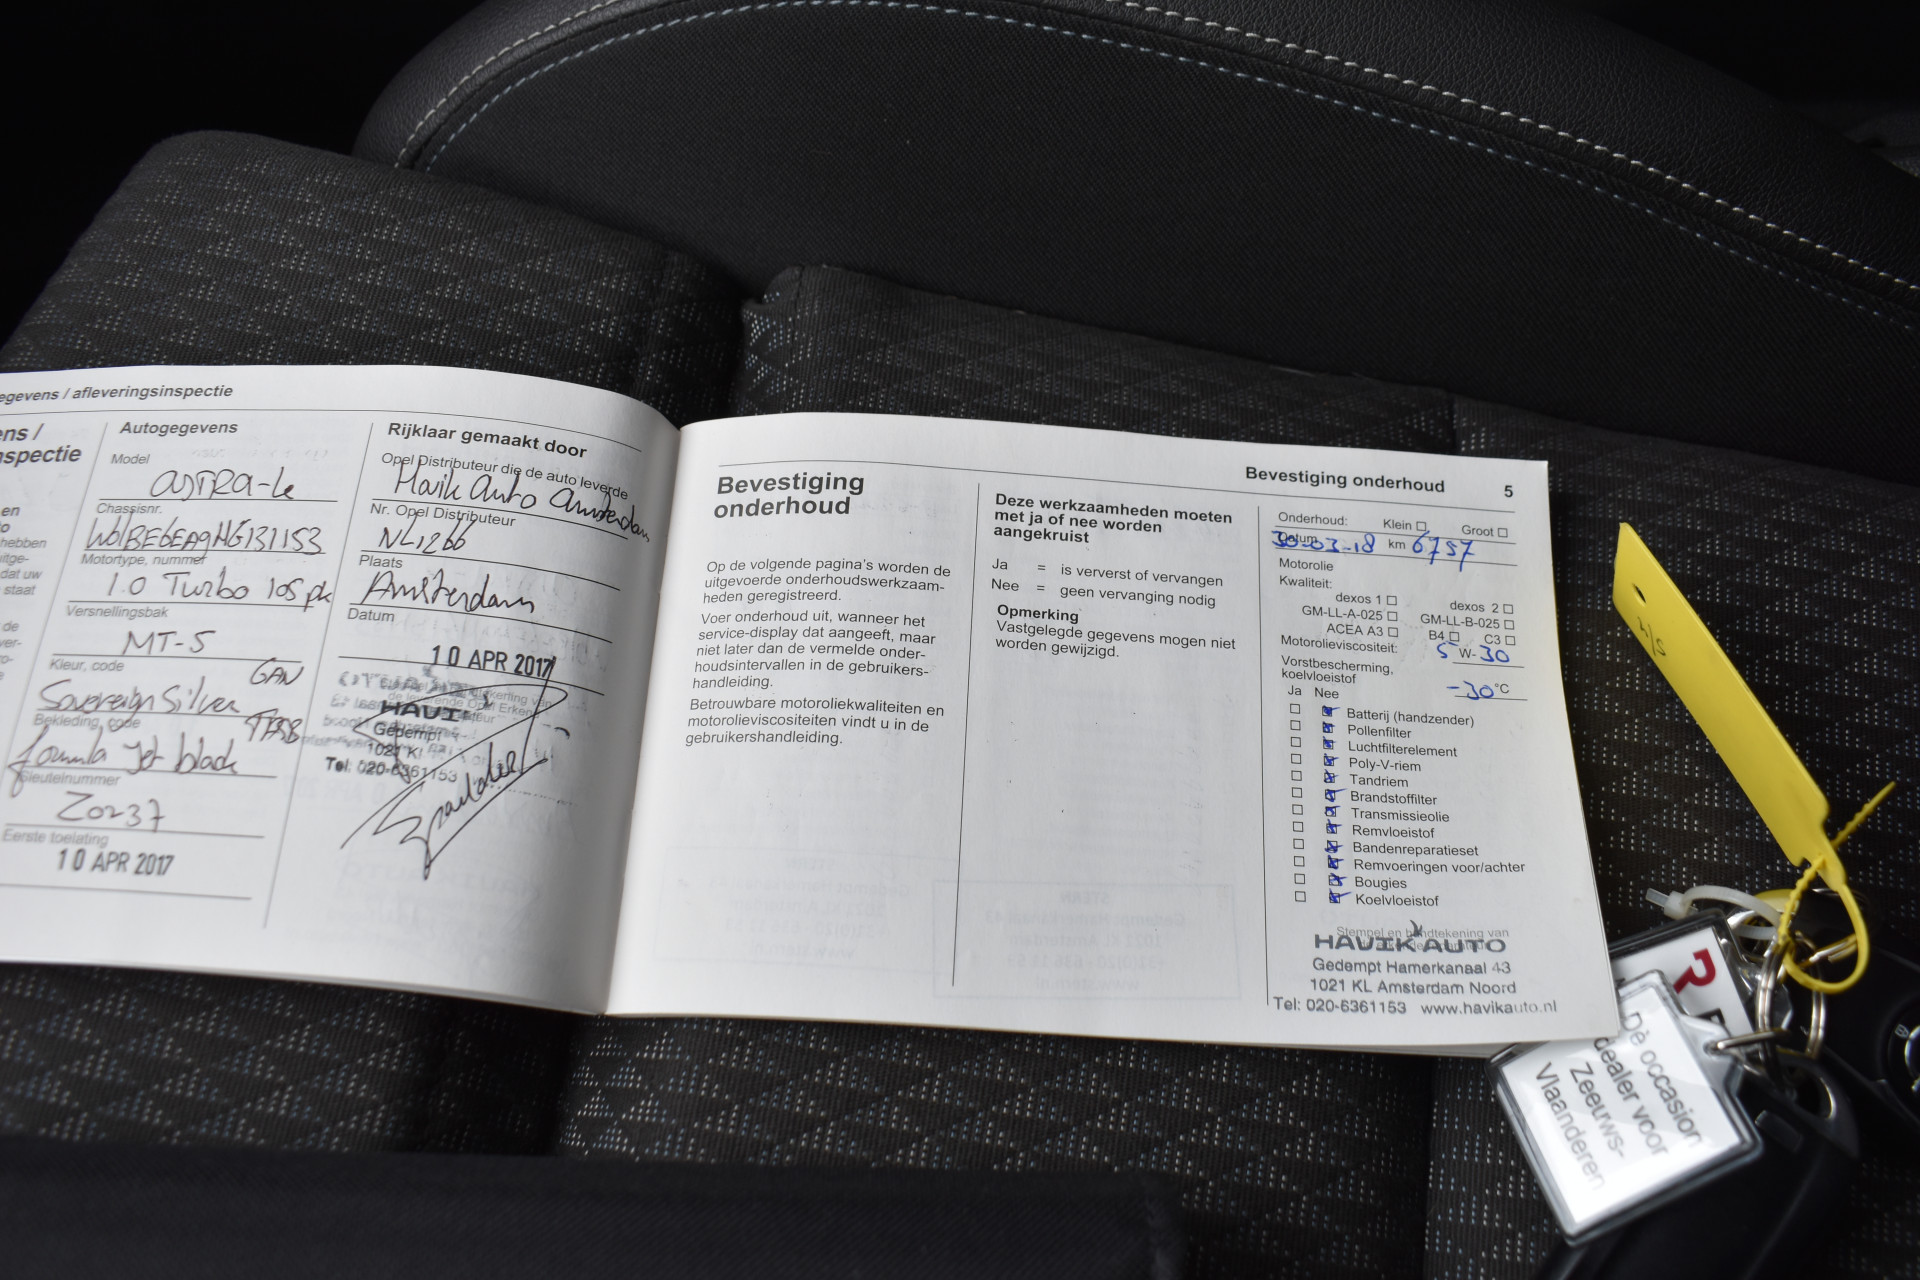 egevens / afleveringsinspectie
ens /
nspectie
en
hebben
dat uw
staat
de
Autogegevens
Model
ASTRA-k
Chassisnr.
W0LBE6EA9HG131153
Motortype, nummer
1.0 Turbo 105 pk
Versnellingsbak
MT-5
Kleur, code
GAN
Sovereign Silver
Bekleding, code
TASB
formula Jet black
Sleutelnummer
Z0237
Eerste toelating
10 APR 2017
Rijklaar gemaakt door
Opel Distributeur die de auto leverde
Havik Auto Amsterdam
Nr. Opel Distributeur
NL1266
Plaats
Amsterdam
Datum
10 APR 2017
HAVI
Gedempt
1021 K
Tel: 020-6361153
Bevestiging
onderhoud
Op de volgende pagina's worden de
uitgevoerde onderhoudswerkzaam-
heden geregistreerd.
Voer onderhoud uit, wanneer het
service-display dat aangeeft, maar
niet later dan de vermelde onder-
houdsintervallen in de gebruikers-
handleiding.
Betrouwbare motoroliekwaliteiten en
motorolieviscositeiten vindt u in de
gebruikershandleiding.
Bevestiging onderhoud 5
Deze werkzaamheden moeten
met ja of nee worden
aangekruist
Ja = is ververst of vervangen
Nee = geen vervanging nodig
Opmerking
Vastgelegde gegevens mogen niet
worden gewijzigd.
Onderhoud: Klein ☐ Groot ☐
Datum 30-03-18 km 6757
Motorolie
Kwaliteit:
dexos 1 ☐ dexos 2 ☐
GM-LL-A-025 ☐ GM-LL-B-025 ☐
ACEA A3 ☐ B4 ☐ C3 ☐
Motorolieviscositeit: 5 W-30
Vorstbescherming,
koelvloeistof -30 °C
Ja Nee
☐ ☒ Batterij (handzender)
☐ ☒ Pollenfilter
☐ ☒ Luchtfilterelement
☐ ☒ Poly-V-riem
☐ ☒ Tandriem
☐ ☒ Brandstoffilter
☐ ☒ Transmissieolie
☐ ☒ Remvloeistof
☐ ☒ Bandenreparatieset
☐ ☒ Remvoeringen voor/achter
☐ ☒ Bougies
☐ ☒ Koelvloeistof
Stempel en handtekening van
HAVIK AUTO
Gedempt Hamerkanaal 43
1021 KL Amsterdam Noord
Tel: 020-6361153 www.havikauto.nl
Dé occasion
dealer voor
Zeeuws-
Vlaanderen